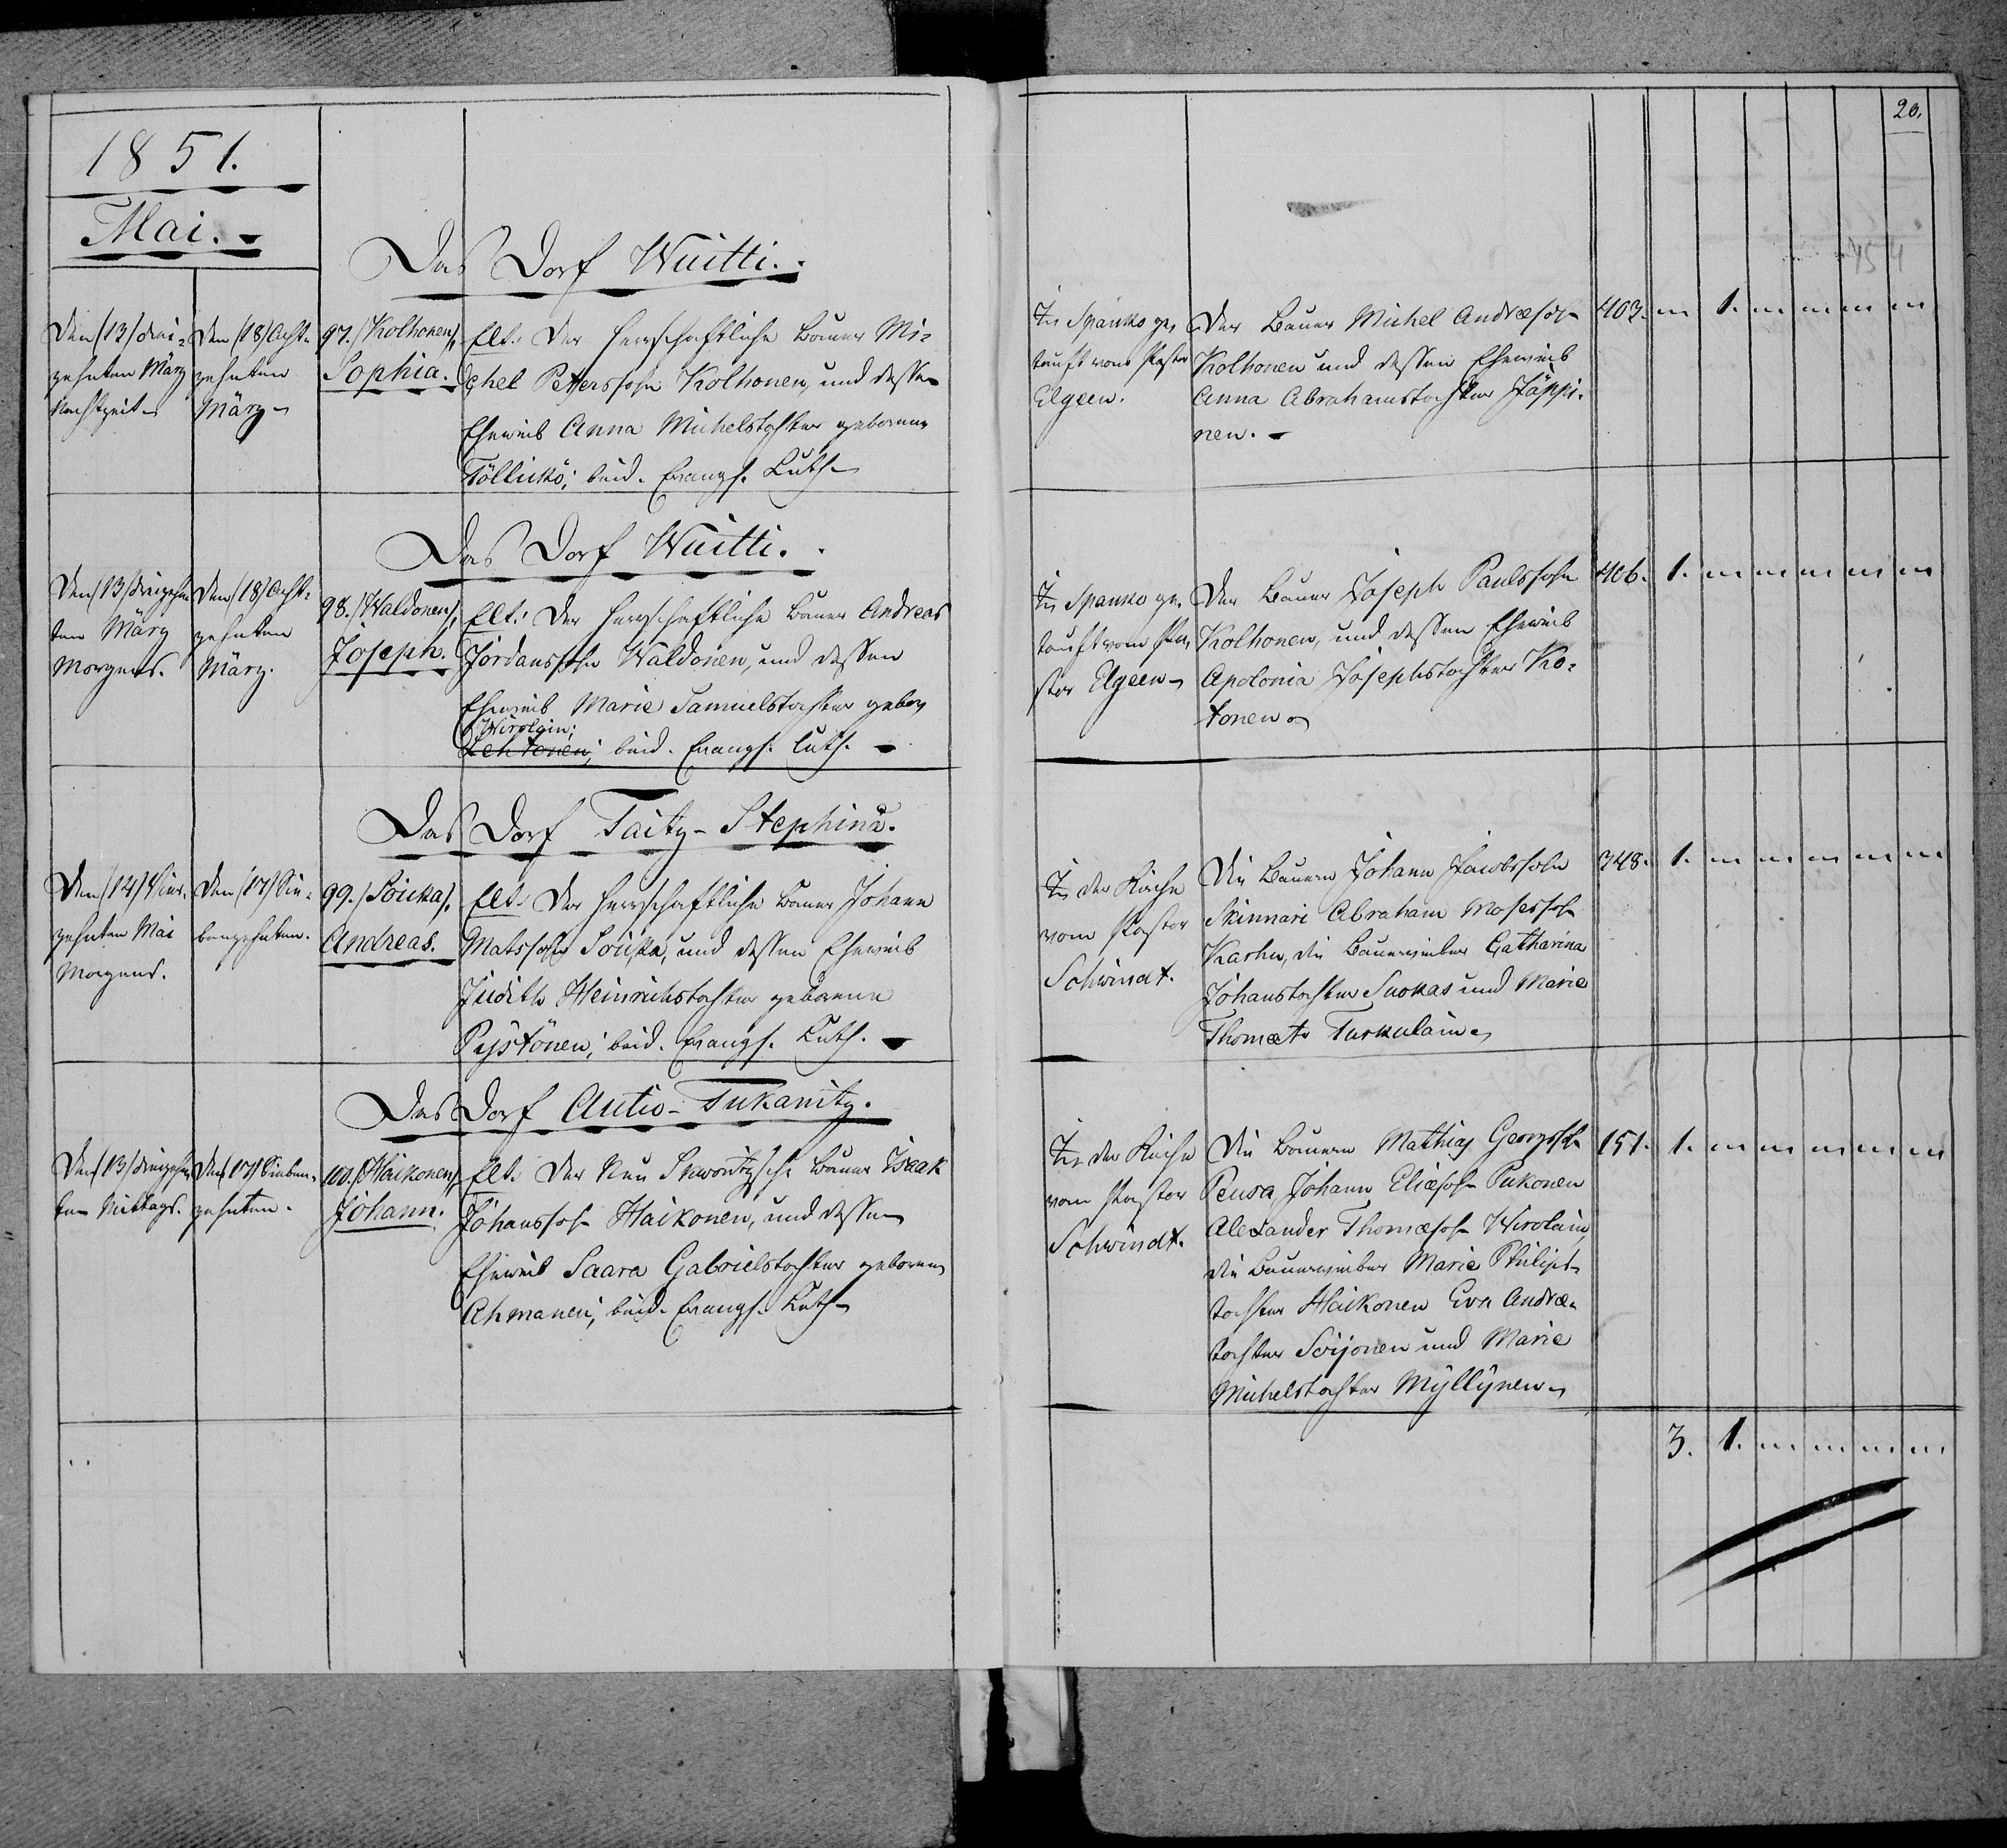 1851.
Mai.
Das Dorf Wuitti.
Den (13) drei-
zehnten März
Nachtzeit
Den (18) Acht-
zehnten
März
97. (Kolhonen),
Sophia.
Elt. Der herrschaftliche Bauer Mi-
chel Petterssohn Kolhonen, und dessen
Eheweib Anna Michelstochter geborene
Töllickö; beid. Evangs. Luth.
In Spanko ge-
tauft vom Pastor
Elgeen.
Der Bauer Michel Andræsohn
Kolhonen und dessen Eheweib
Anna Abrahamstochter Jäppi-
nen.
403. " 1. " " " "
20.
Das Dorf Wuitti.
Den (13) dreizehn-
ten März
Morgens.
Den (18) Acht-
zehnten
März.
98. (Waldonen),
Joseph.
Elt: Der herrschaftliche Bauer Andreas
Jordanssohn Waldonen, und dessen
Eheweib Marie Samuelstochter gebor
Wirolain;
Lehtonen; beid. Evangs. Luth.
In Spanko ge-
tauft vom Pa-
stor Elgeen
Der Bauer Joseph Paulssohn
Kolhonen, und dessen Eheweib
Apolonia Josephstochter Ko-
tonen
406. 1. " " " " "
Das Dorf Taitz-Stephina.
Den (14) Vier-
zehnten Mai
Morgens.
Den (17) Sie-
benzehnten.
99. (Souka),
Andreas.
Elt. Der herrschaftliche Bauer Johann
Matssohn Souka, und dessen Eheweib
Judith Heinrichstochter geborene
Pystönen; beid. Evangs. Luth.
In der Kirche
vom Pastor
Schwindt.
Die Bauern Johann Jacobssohn
Skinnari Abraham Mosessohn
Karhu, die Bauerweiber Catharina
Johanstochter Suokas und Marie
Thomæto Turkulain
348. 1. " " " " "
Das Dorf Autio-Tukanitz.
Den (13) dreizehn-
ten Mittags.
Den (17) Sieben-
zehnten.
100. (Haikonen),
Johann.
Elt. Der Neu Skworitzsche Bauer Isaak
Johanssohn Haikonen, und dessen
Eheweib Saara Gabrielstochter geborene
Ahmanen; beid. Evangs. Luth.
In der Kirche
vom Pastor
Schwindt.
Die Bauern Mathias Georgssohn
Peusa, Johann Eliæsohn Pukonen
Alexander Thomæsohn Wirolain,
die Bauerweiber Marie Philips-
tochter Haikonen Eva Andræ-
tochter Soijonen und Marie
Michelstochter Myllynen
151. 1. " " " " "
3. 1. " " " "